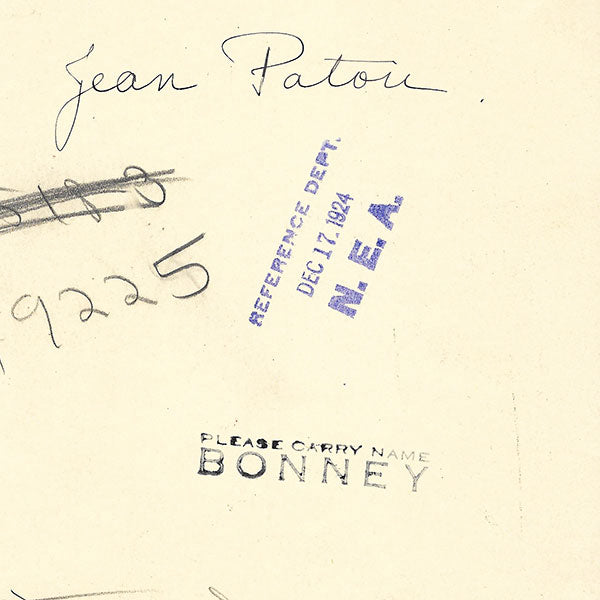 Jean Patou
9225
REFERENCE DEPT.
DEC 17. 1924
N. E. A.
PLEASE CARRY NAME
BONNEY